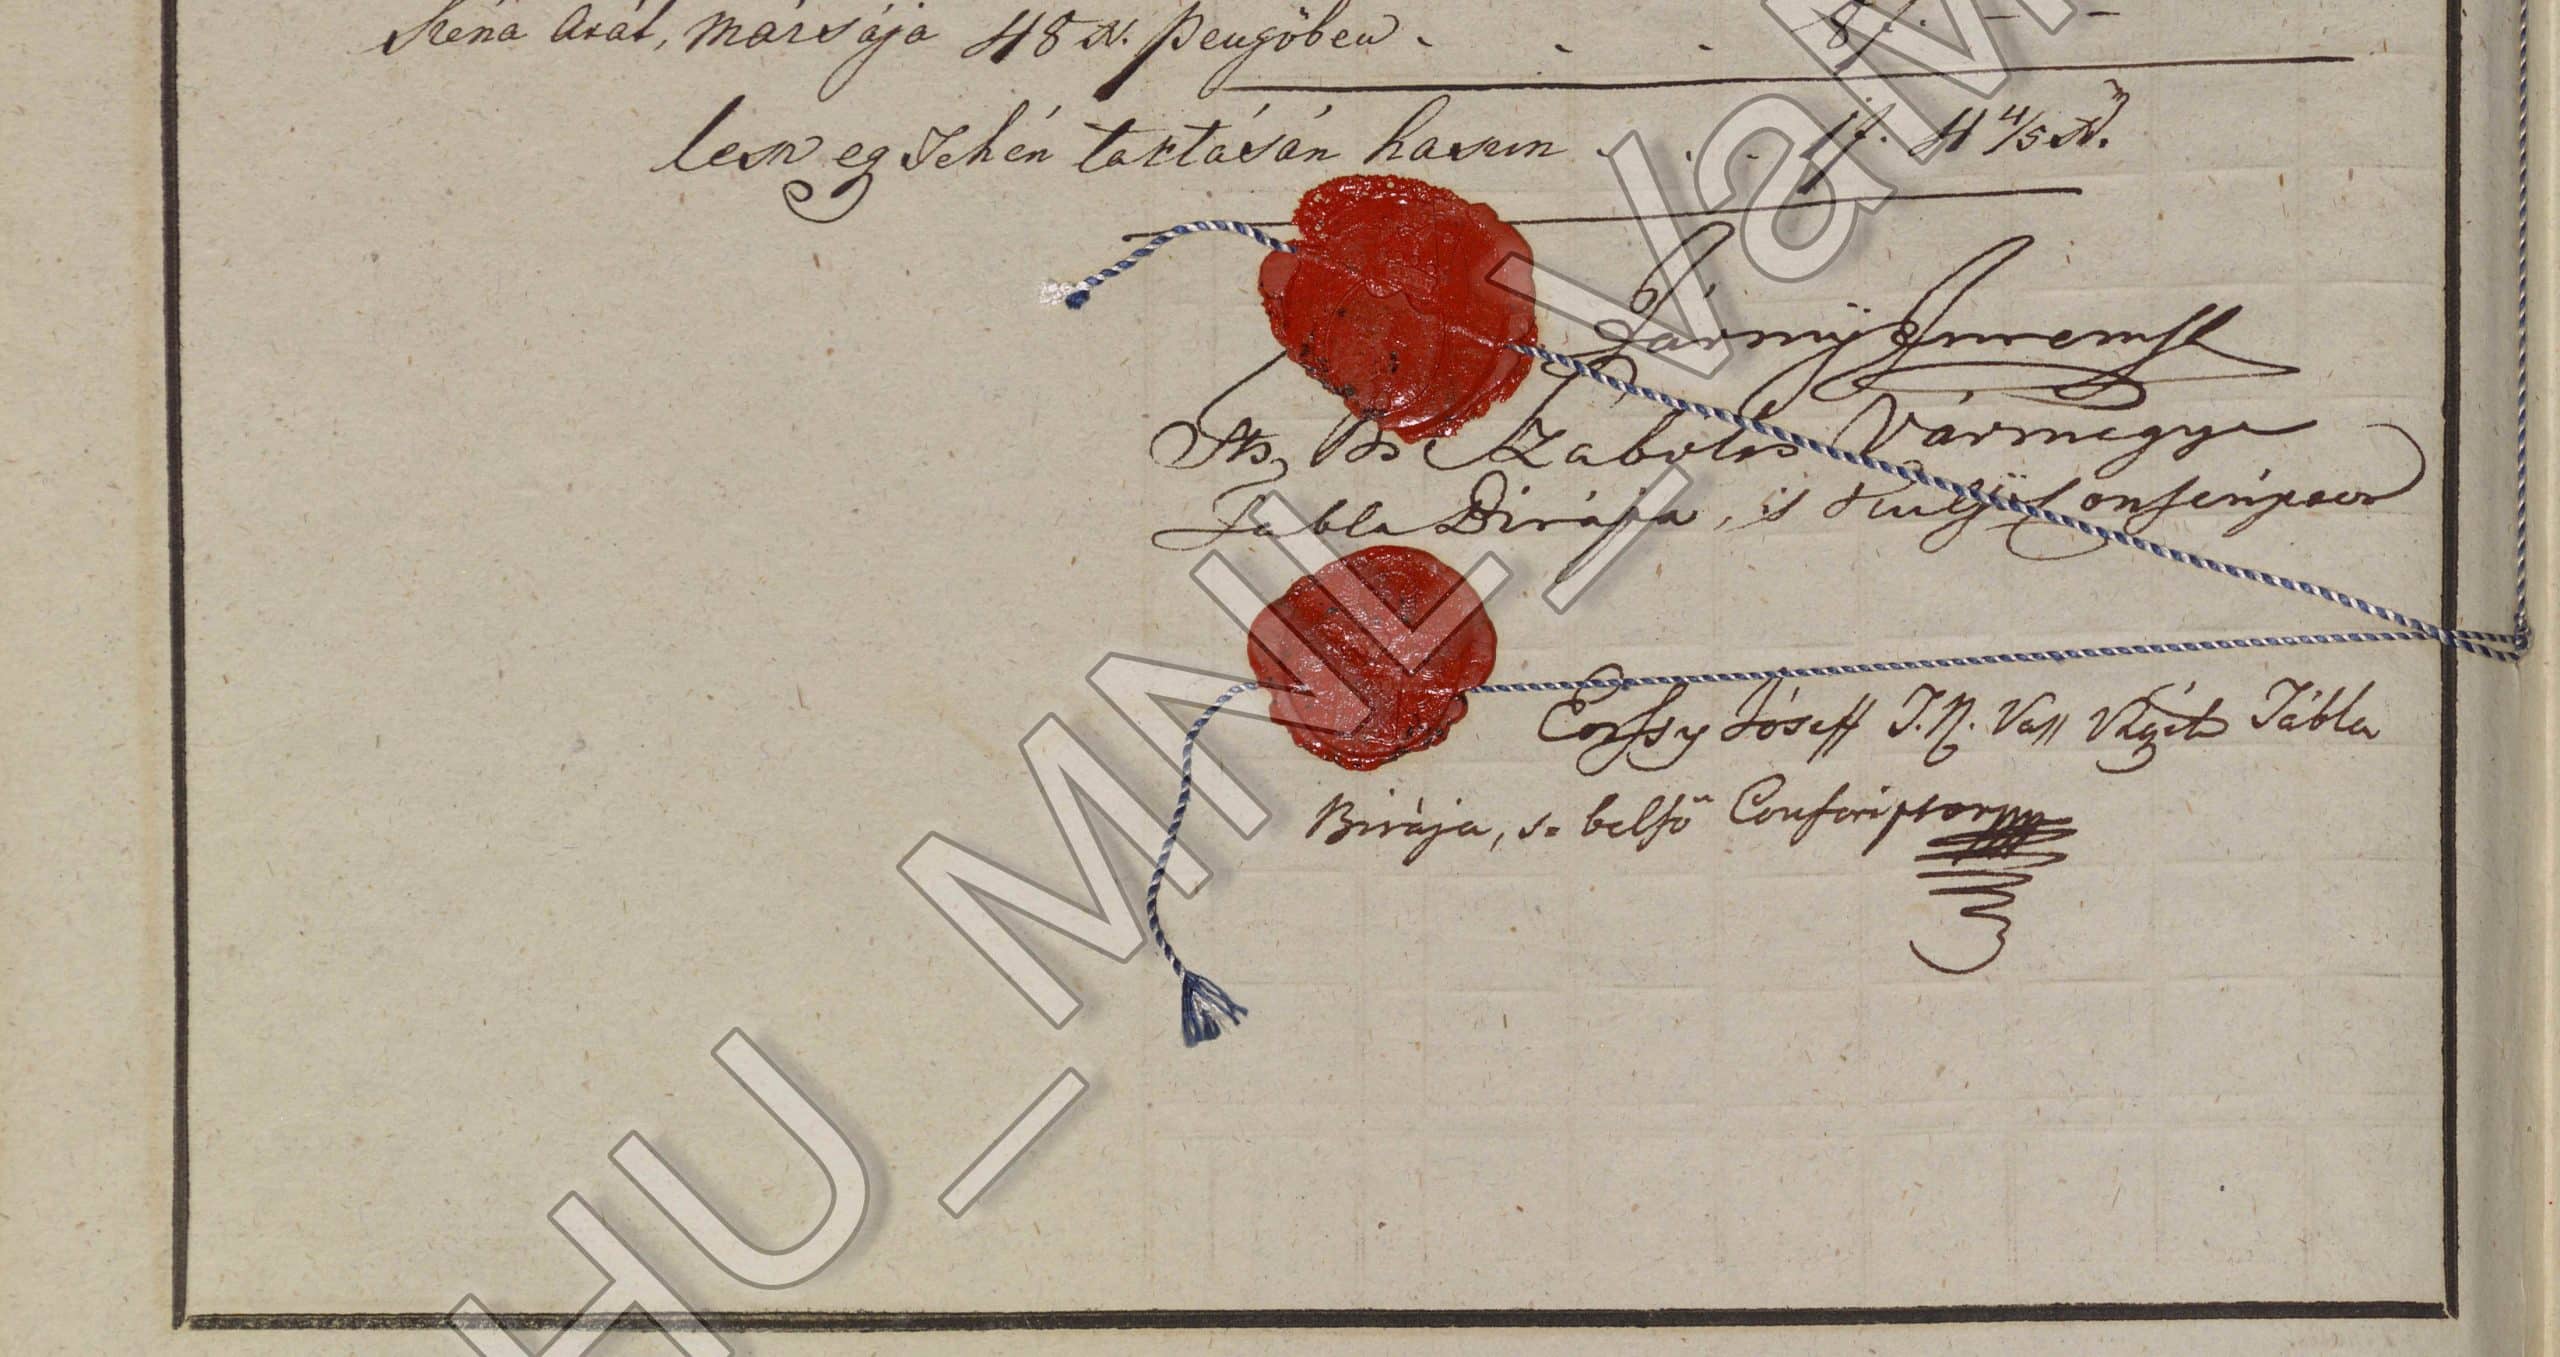 Széna árát, mázsája 48 x. pengőben . . . 8f. — —
lesz egy Tehén tartásán haszon . . . 1f. 4 4/5 xr.
Jármÿ Imre mk
Ns. Szabolcs Vármegye
Tabla Birája, 's Külsÿ Conscriptor
Eörssy Jóseff T. N. Vass Vgyei Tábla
Birája, s= belső Conscriptor
HU_MNL_VaM